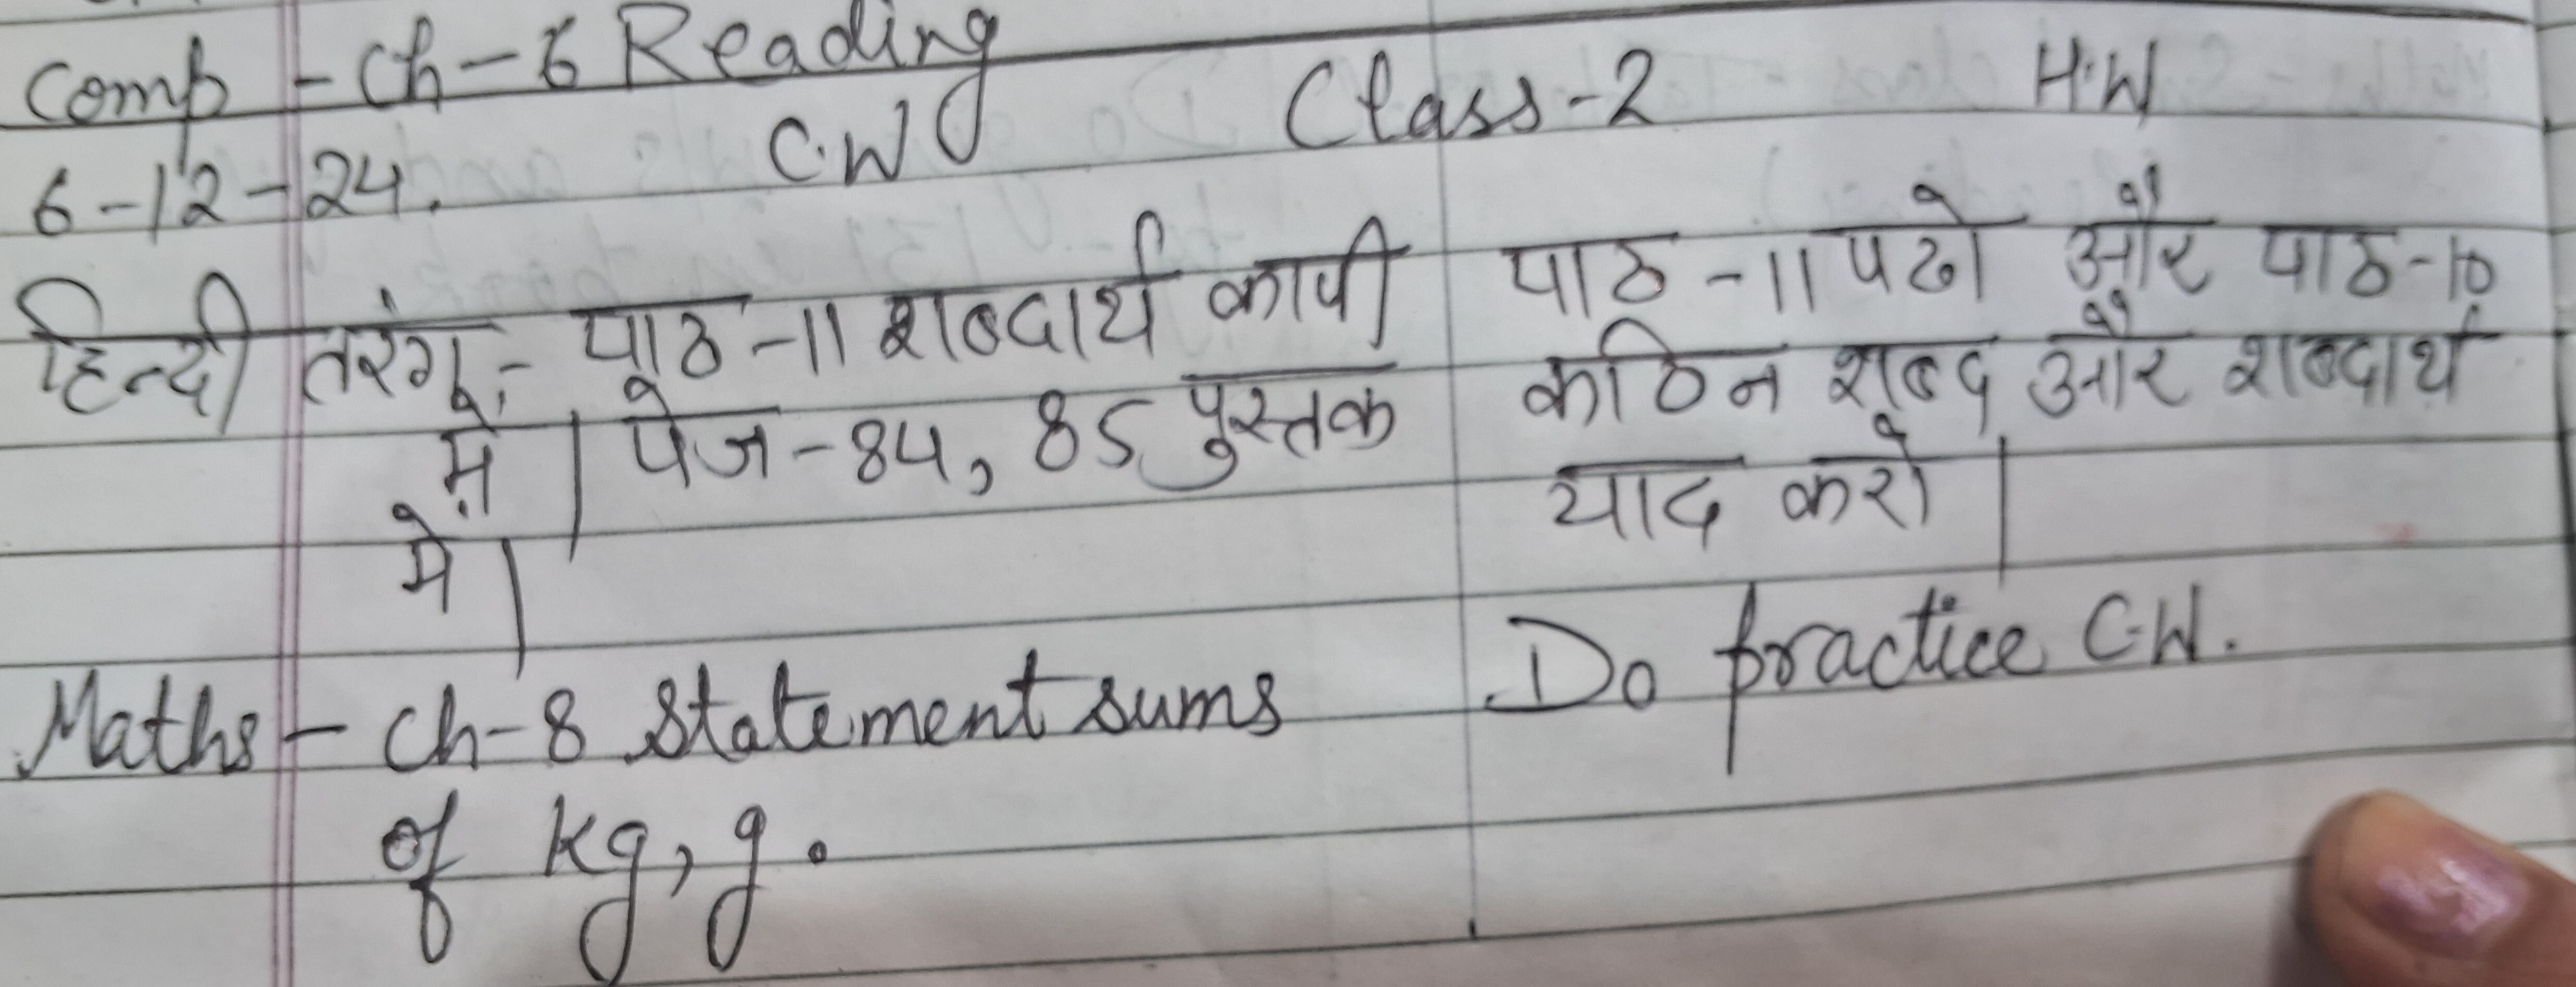 Comp - Ch - 6 Reading
6-12-24. C.W Class-2 H.W
हिन्दी तरंग:- पाठ -11 शब्दार्थ कापी
में | पेज - 84, 85 पुस्तक
मे |
पाठ -11 पढो और पाठ-10
कठिन शब्द और शब्दार्थ
याद करो |
Maths - Ch-8 Statement sums
of kg, g.
Do practice C.W.